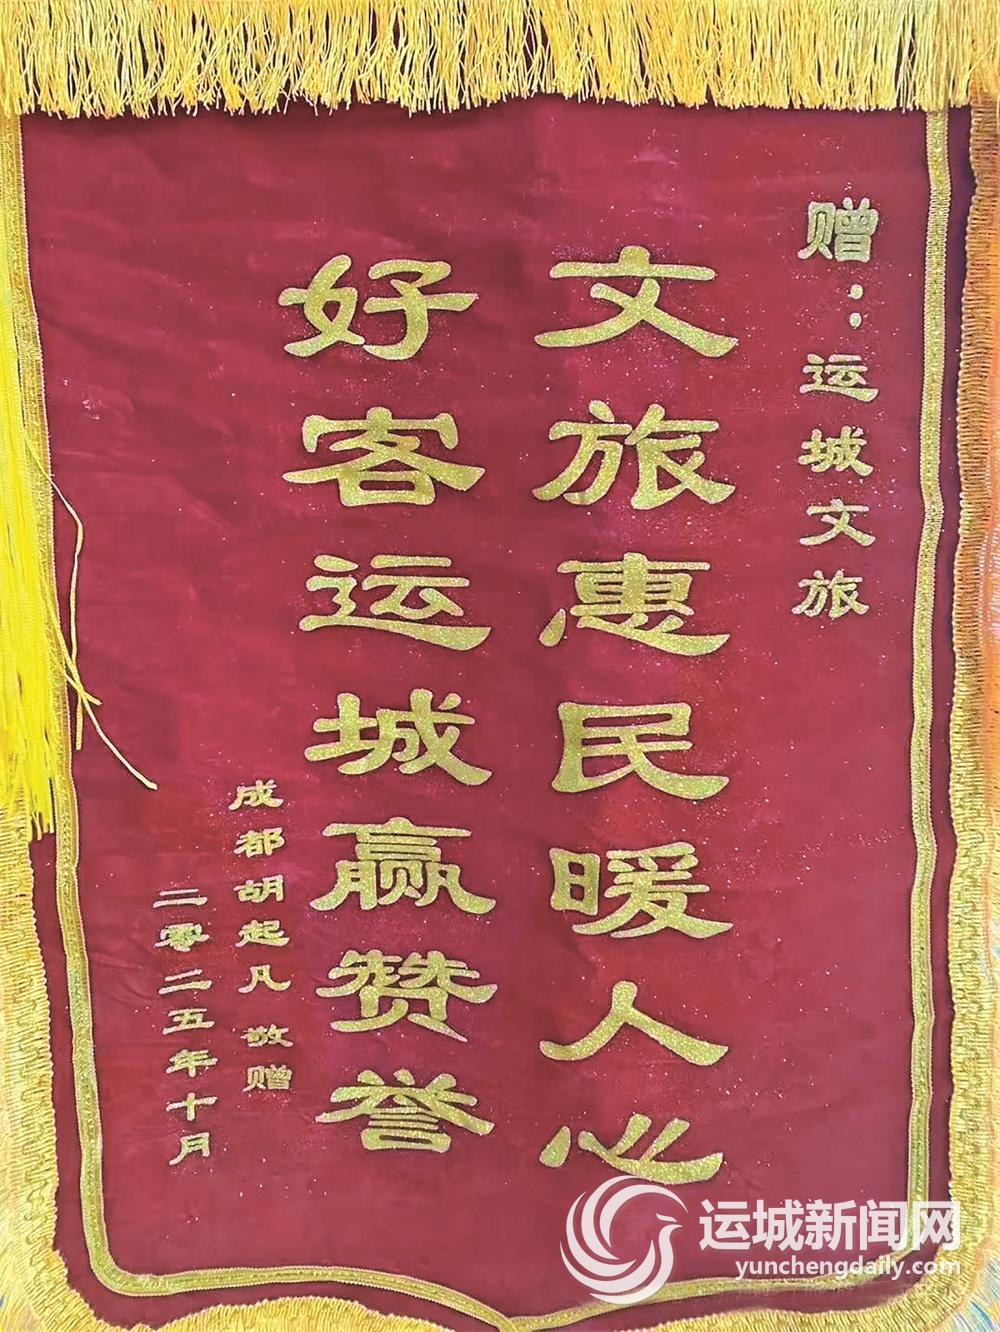 赠：运城文旅
文旅惠民暖人心
好客运城赢赞誉
成都胡起凡 敬赠
二零二五年十月
运城新闻网
yunchengdaily.com